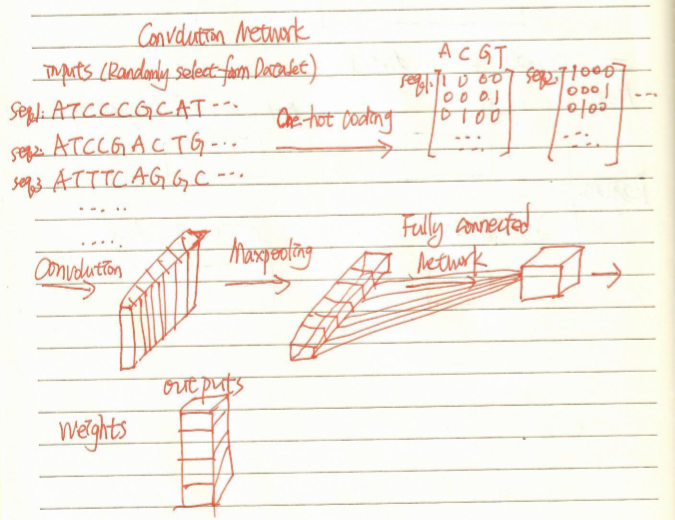 Convolution Network
inputs (Randomly select from Dataset)
A C G T
seq1: ATCCCGCAT ...
seq2: ATCCGACTG ...
seq3 ATTTCAGGC ...
.....
.....
One-hot coding
seq1: 1 0 0 0
0 0 0 1
0 1 0 0
....
seq2: 1000
0001
0100
....
...
Convolution
Maxpooling
Fully connected
Network
Weights
outputs